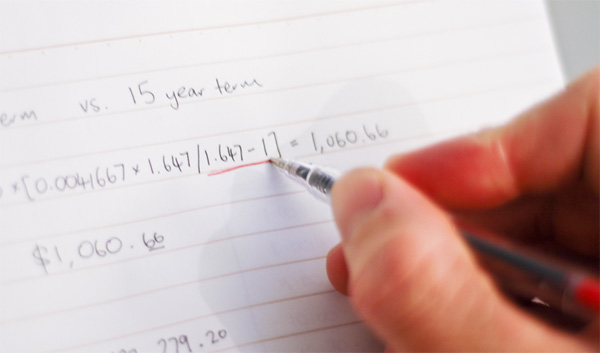 vs. 15 year term
×[0.0041667 × 1.647/1.647-1] = 1,060.66
$1,060.66
279.20